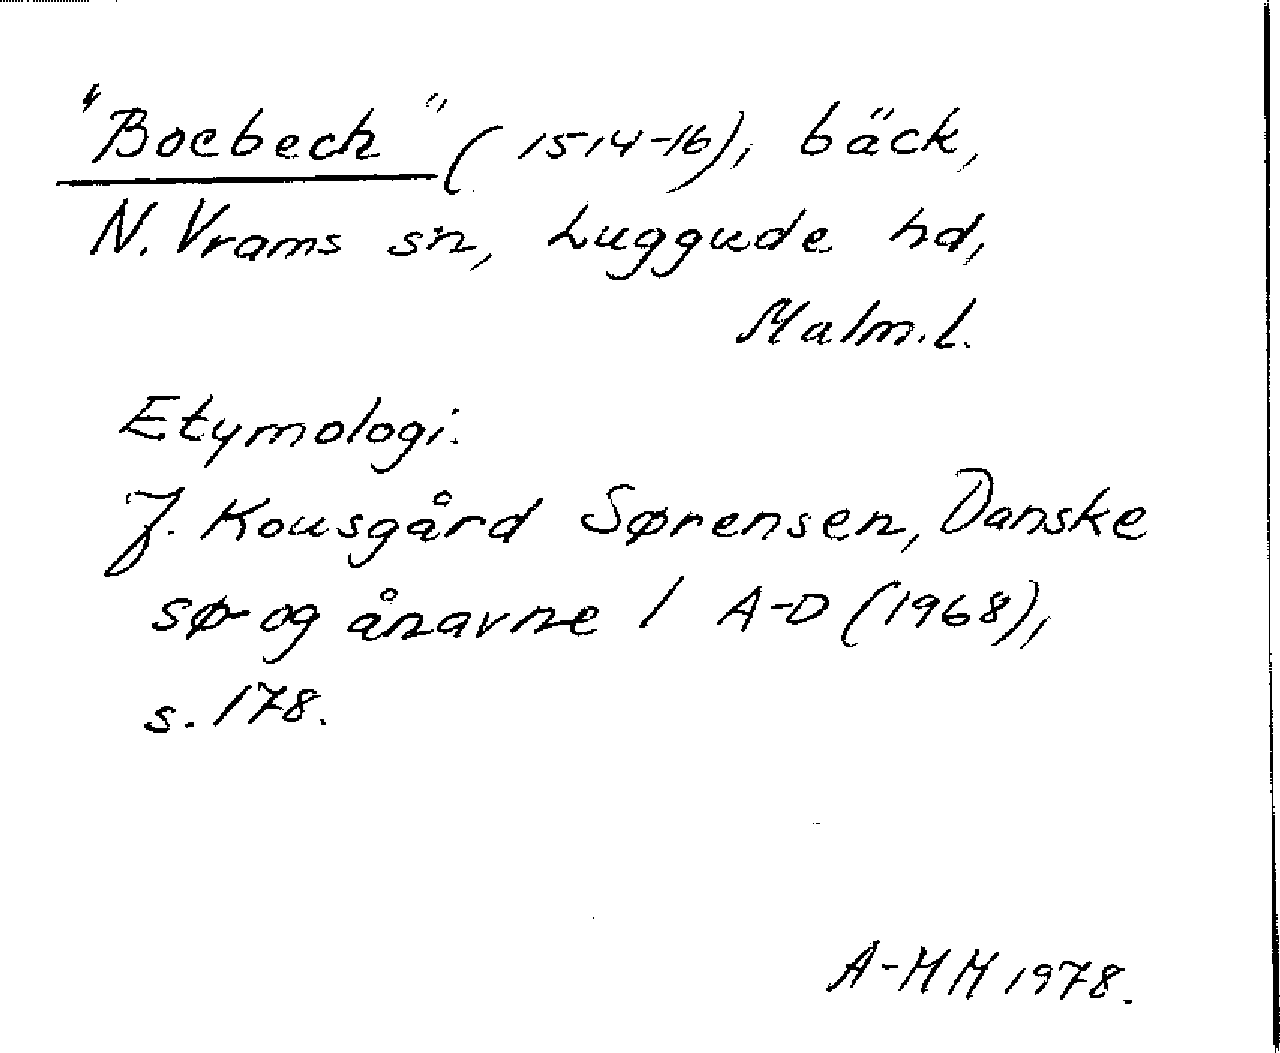 "Boebech" (1514-16), bäck,
N. Vrams sn, Luggude hd,
Malm.l.
Etymologi.
J. Kousgård Sørensen, Danske
sø- og ånavne 1 A-D (1968),
s. 178.
A-MH 1978.